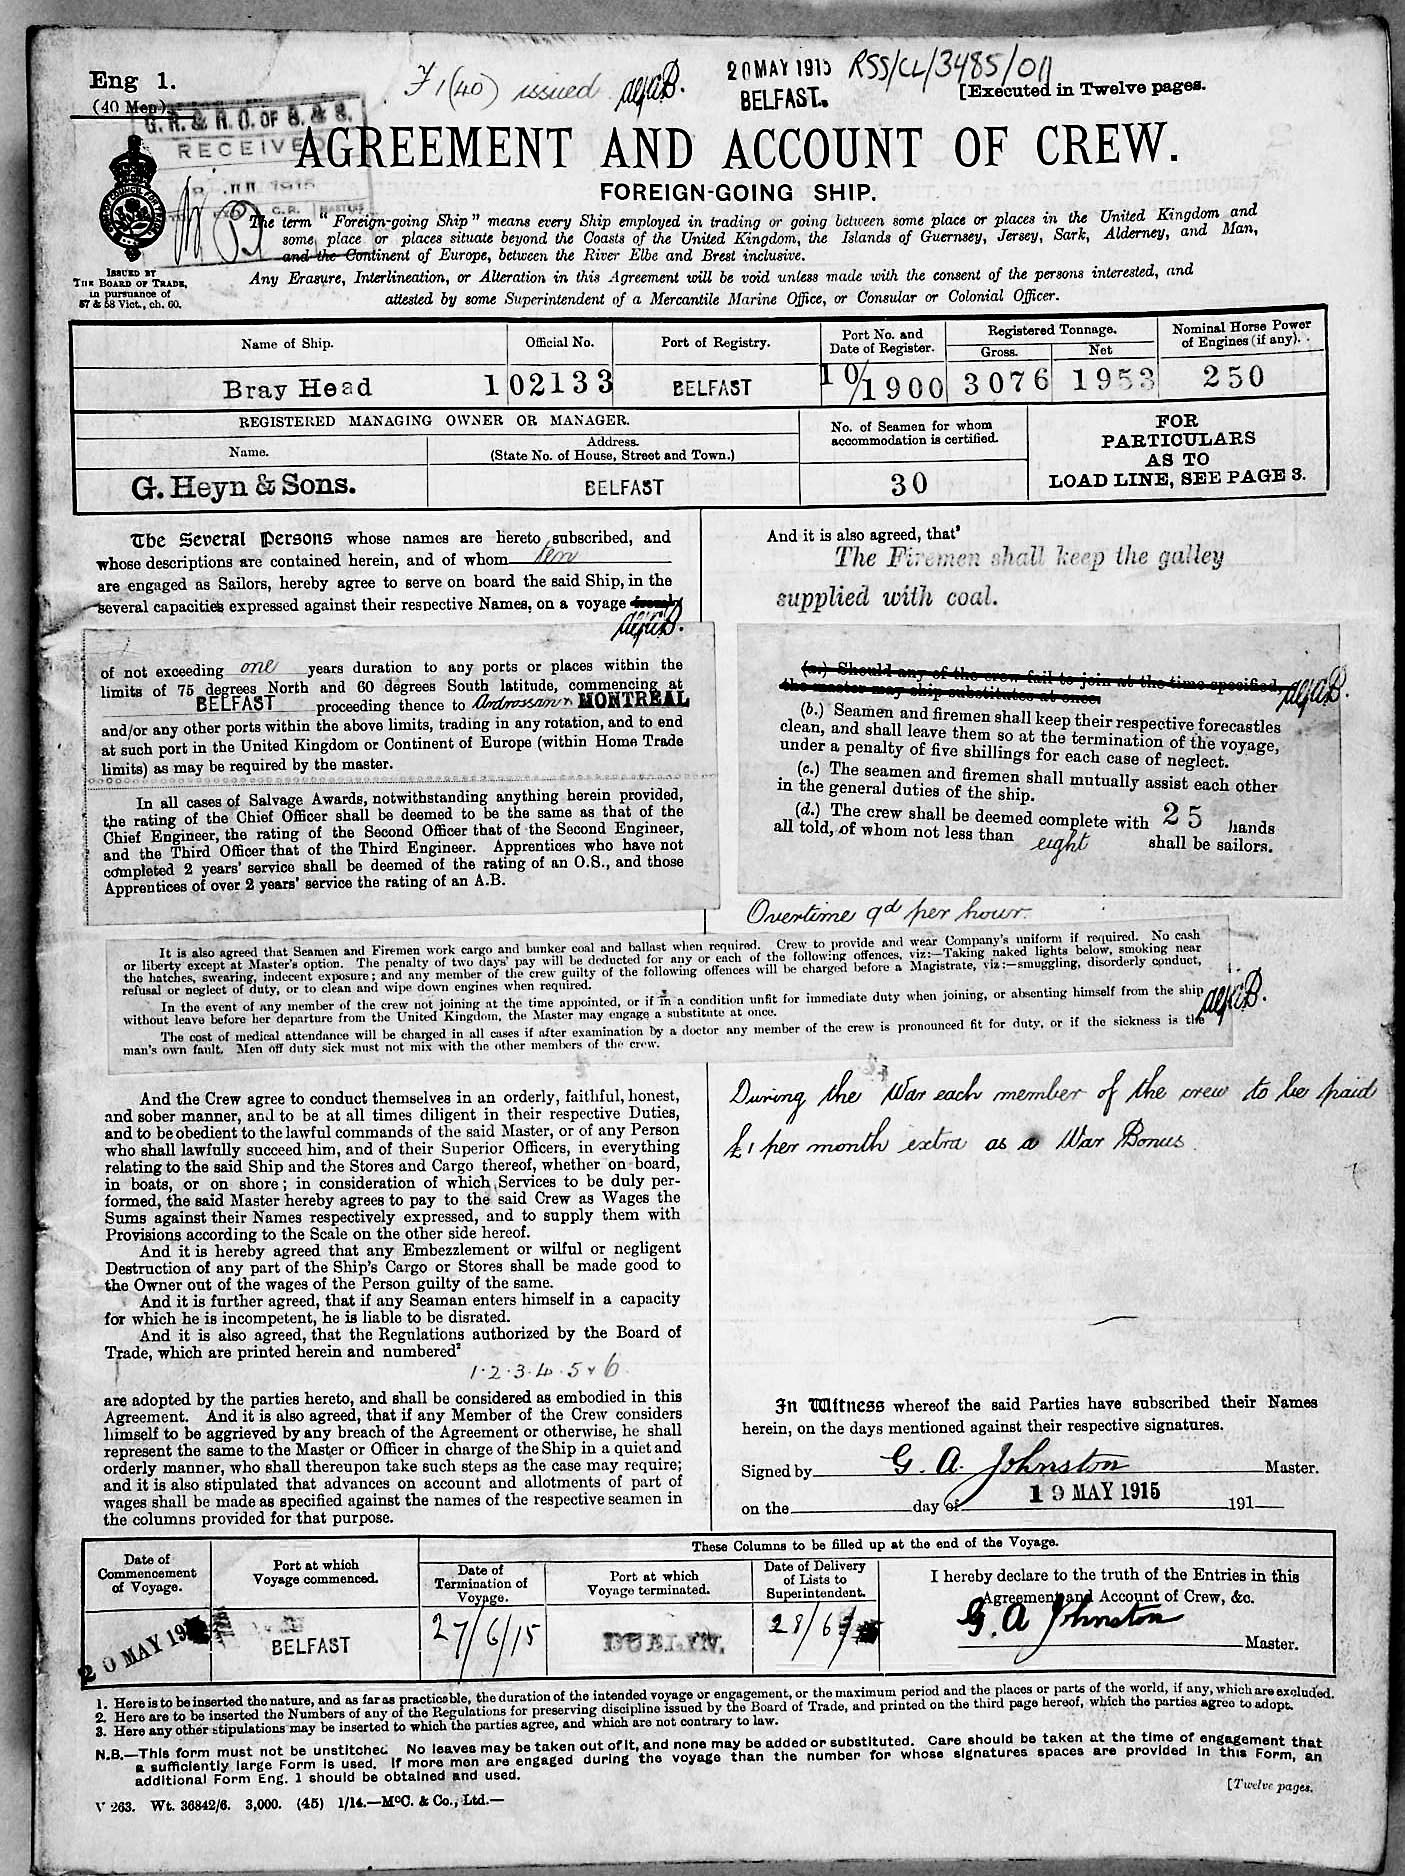 Eng 1.
(40 Men)
F 1 (40) issued
20 MAY 1915
BELFAST.
RSS/CL/3485/011
[Executed in Twelve pages.
G. R. & R. O. OF S. & S.
RECEIVED
AGREEMENT AND ACCOUNT OF CREW.
FOREIGN-GOING SHIP.
The term "Foreign-going Ship" means every Ship employed in trading or going between some place or places in the United Kingdom and
some place or places situate beyond the Coasts of the United Kingdom, the Islands of Guernsey, Jersey, Sark, Alderney, and Man,
and the Continent of Europe, between the River Elbe and Brest inclusive.
Any Erasure, Interlineation, or Alteration in this Agreement will be void unless made with the consent of the persons interested, and
attested by some Superintendent of a Mercantile Marine Office, or Consular or Colonial Officer.
ISSUED BY
THE BOARD OF TRADE,
in pursuance of
57 & 58 Vict., ch. 60.
Name of Ship.
Official No.
Port of Registry.
Port No. and
Date of Register.
Registered Tonnage.
Gross.
Net
Nominal Horse Power
of Engines (if any).
Bray Head
102133
BELFAST
10/1900
3076
1953
250
REGISTERED MANAGING OWNER OR MANAGER.
Name.
Address.
(State No. of House, Street and Town.)
No. of Seamen for whom
accommodation is certified.
FOR
PARTICULARS
AS TO
LOAD LINE, SEE PAGE 3.
G. Heyn & Sons.
BELFAST
30
The Several Persons whose names are hereto subscribed, and
whose descriptions are contained herein, and of whom ten
are engaged as Sailors, hereby agree to serve on board the said Ship, in the
several capacities expressed against their respective Names, on a voyage
of not exceeding one years duration to any ports or places within the
limits of 75 degrees North and 60 degrees South latitude, commencing at
BELFAST proceeding thence to Ardrossan & MONTREAL
and/or any other ports within the above limits, trading in any rotation, and to end
at such port in the United Kingdom or Continent of Europe (within Home Trade
limits) as may be required by the master.
In all cases of Salvage Awards, notwithstanding anything herein provided,
the rating of the Chief Officer shall be deemed to be the same as that of the
Chief Engineer, the rating of the Second Officer that of the Second Engineer,
and the Third Officer that of the Third Engineer. Apprentices who have not
completed 2 years' service shall be deemed of the rating of an O.S., and those
Apprentices of over 2 years' service the rating of an A.B.
And it is also agreed, that³
The Firemen shall keep the galley
supplied with coal.
(a.) Should any of the crew fail to join at the time specified,
the master may ship substitutes at once.
(b.) Seamen and firemen shall keep their respective forecastles
clean, and shall leave them so at the termination of the voyage,
under a penalty of five shillings for each case of neglect.
(c.) The seamen and firemen shall mutually assist each other
in the general duties of the ship.
(d.) The crew shall be deemed complete with 25 hands
all told, of whom not less than eight shall be sailors.
Overtime 9d per hour.
It is also agreed that Seamen and Firemen work cargo and bunker coal and ballast when required. Crew to provide and wear Company's uniform if required. No cash
or liberty except at Master's option. The penalty of two days' pay will be deducted for any or each of the following offences, viz:—Taking naked lights below, smoking near
the hatches, swearing, indecent exposure; and any member of the crew guilty of the following offences will be charged before a Magistrate, viz:—smuggling, disorderly conduct,
refusal or neglect of duty, or to clean and wipe down engines when required.
In the event of any member of the crew not joining at the time appointed, or if in a condition unfit for immediate duty when joining, or absenting himself from the ship
without leave before her departure from the United Kingdom, the Master may engage a substitute at once.
The cost of medical attendance will be charged in all cases if after examination by a doctor any member of the crew is pronounced fit for duty, or if the sickness is the
man's own fault. Men off duty sick must not mix with the other members of the crew.
And the Crew agree to conduct themselves in an orderly, faithful, honest,
and sober manner, and to be at all times diligent in their respective Duties,
and to be obedient to the lawful commands of the said Master, or of any Person
who shall lawfully succeed him, and of their Superior Officers, in everything
relating to the said Ship and the Stores and Cargo thereof, whether on board,
in boats, or on shore; in consideration of which Services to be duly per-
formed, the said Master hereby agrees to pay to the said Crew as Wages the
Sums against their Names respectively expressed, and to supply them with
Provisions according to the Scale on the other side hereof.
And it is hereby agreed that any Embezzlement or wilful or negligent
Destruction of any part of the Ship's Cargo or Stores shall be made good to
the Owner out of the wages of the Person guilty of the same.
And it is further agreed, that if any Seaman enters himself in a capacity
for which he is incompetent, he is liable to be disrated.
And it is also agreed, that the Regulations authorized by the Board of
Trade, which are printed herein and numbered²
1.2.3.4.5 & 6
are adopted by the parties hereto, and shall be considered as embodied in this
Agreement. And it is also agreed, that if any Member of the Crew considers
himself to be aggrieved by any breach of the Agreement or otherwise, he shall
represent the same to the Master or Officer in charge of the Ship in a quiet and
orderly manner, who shall thereupon take such steps as the case may require;
and it is also stipulated that advances on account and allotments of part of
wages shall be made as specified against the names of the respective seamen in
the columns provided for that purpose.
During the War each member of the crew to be paid
£1 per month extra as a War Bonus
In Witness whereof the said Parties have subscribed their Names
herein, on the days mentioned against their respective signatures.
Signed by G. A. Johnston Master.
on the day of 19 MAY 1915 191
These Columns to be filled up at the end of the Voyage.
Date of
Commencement
of Voyage.
Port at which
Voyage commenced.
Date of
Termination of
Voyage.
Port at which
Voyage terminated.
Date of Delivery
of Lists to
Superintendent.
I hereby declare to the truth of the Entries in this
Agreement and Account of Crew, &c.
20 MAY 19
BELFAST
27/6/15
DUBLIN.
28/6
G. A. Johnston
Master.
1. Here is to be inserted the nature, and as far as practicable, the duration of the intended voyage or engagement, or the maximum period and the places or parts of the world, if any, which are excluded.
2. Here are to be inserted the Numbers of any of the Regulations for preserving discipline issued by the Board of Trade, and printed on the third page hereof, which the parties agree to adopt.
3. Here any other stipulations may be inserted to which the parties agree, and which are not contrary to law.
N.B.—This form must not be unstitched. No leaves may be taken out of it, and none may be added or substituted. Care should be taken at the time of engagement that
a sufficiently large Form is used. If more men are engaged during the voyage than the number for whose signatures spaces are provided in this Form, an
additional Form Eng. 1 should be obtained and used.
[Twelve pages.
V 263. Wt. 36842/6. 3,000. (45) 1/14.—McC. & Co., Ltd.—